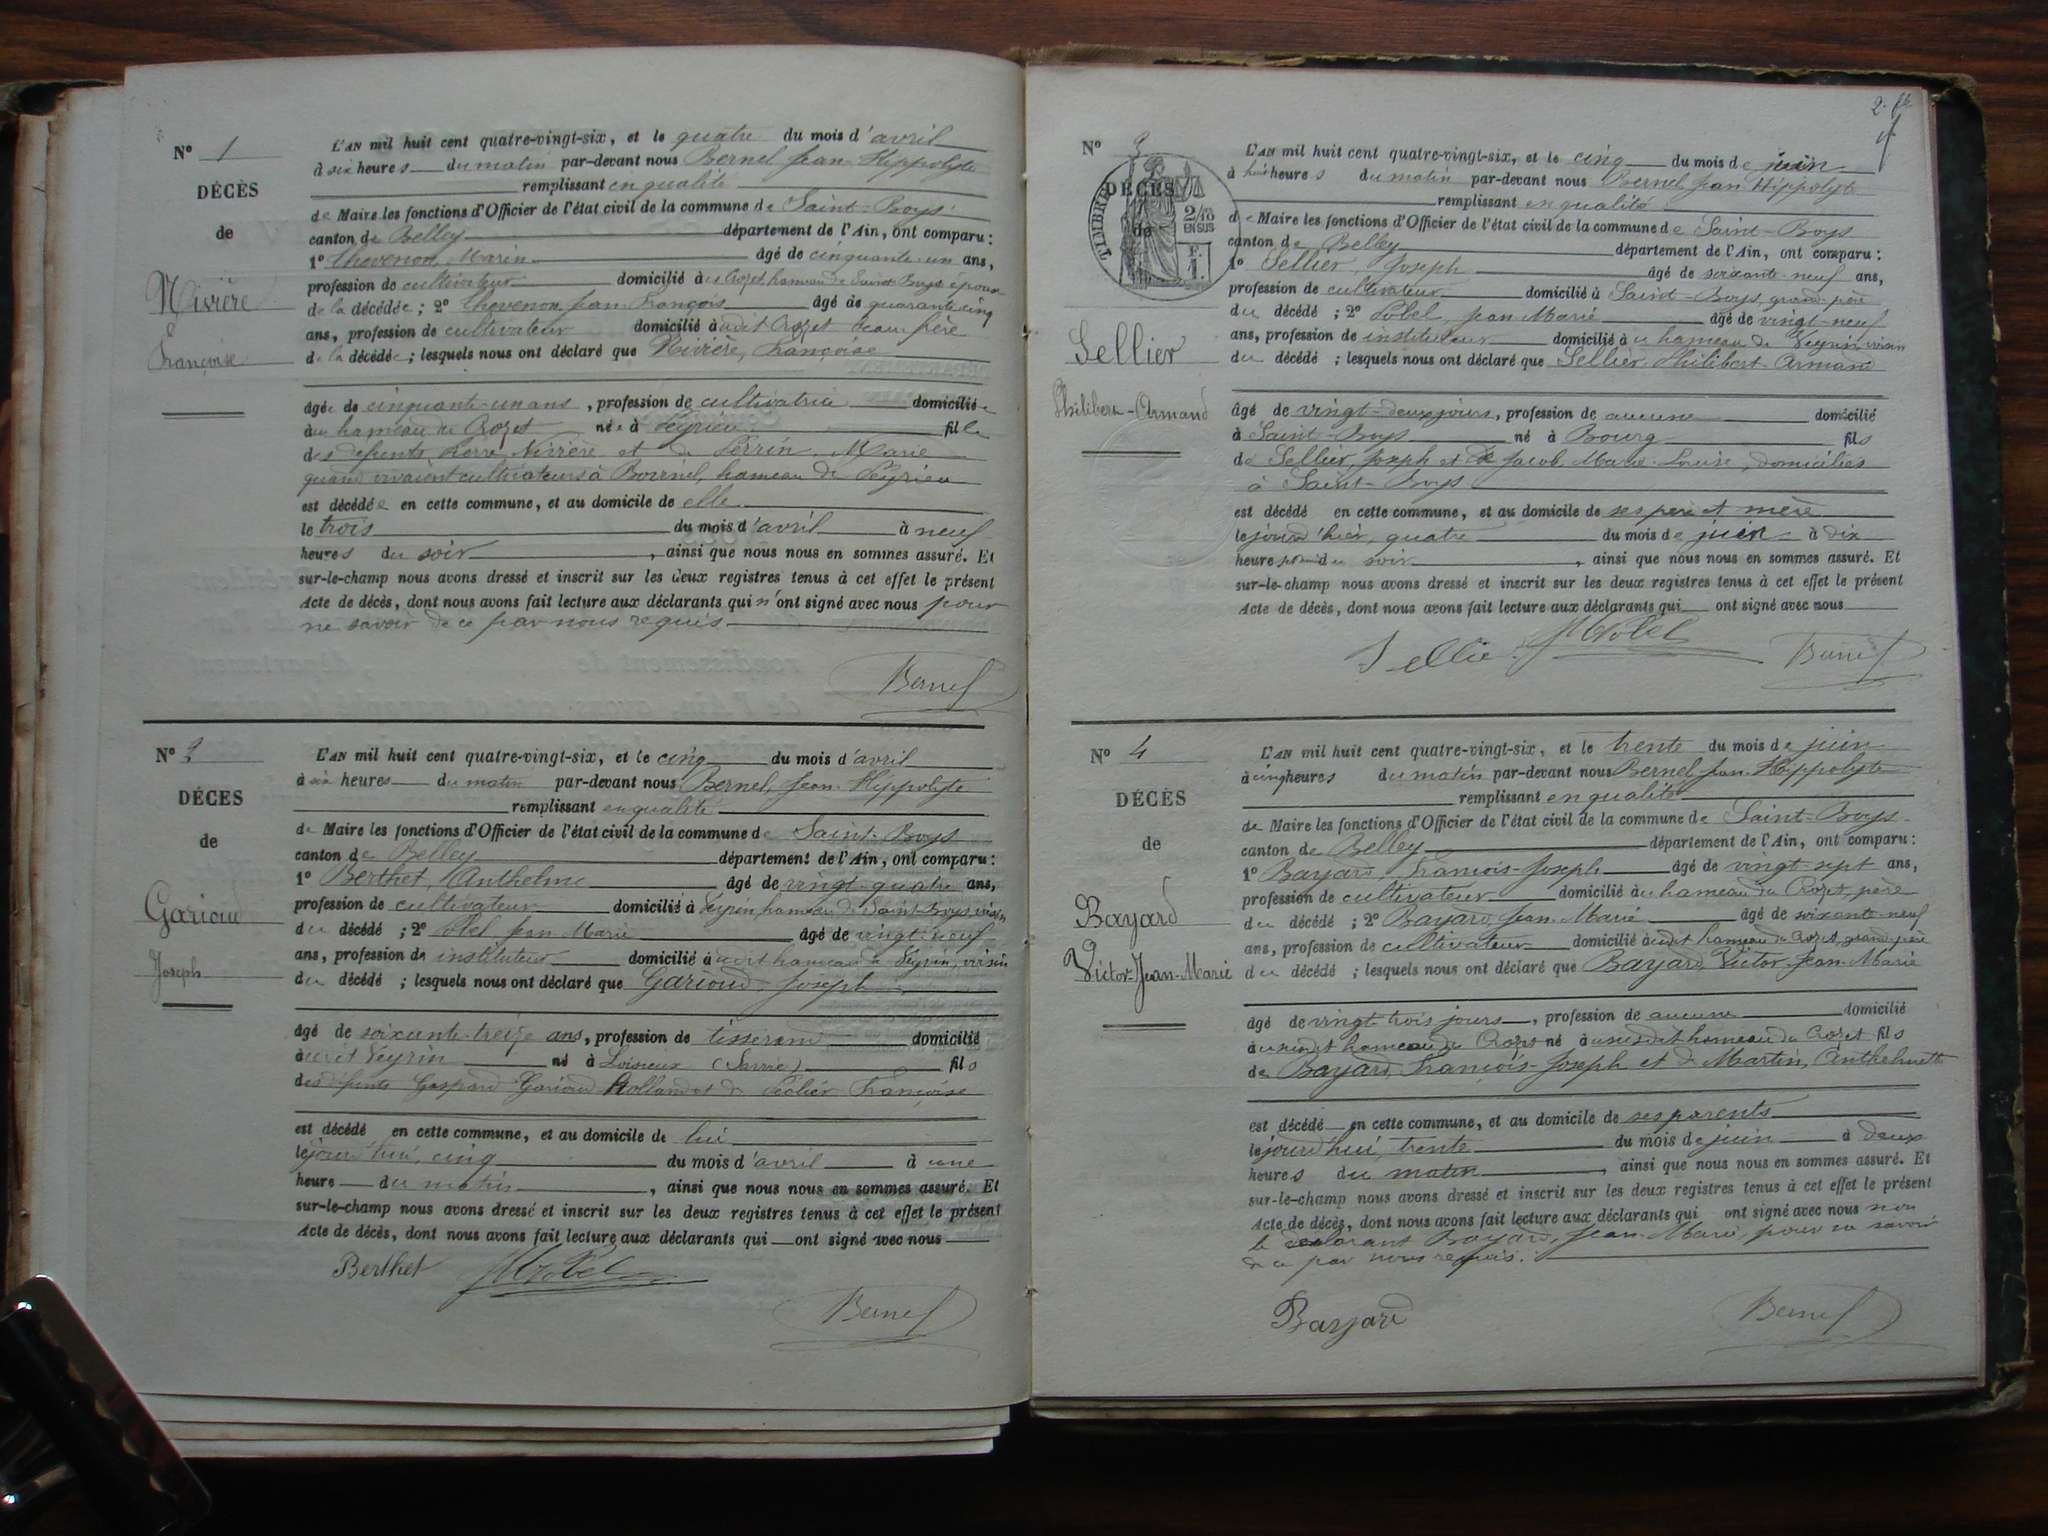 N° 1
DÉCÈS
de
Rivière
Françoise
L'AN mil huit cent quatre-vingt-six, et le quatre du mois d'avril
à six heures du matin par-devant nous Bernel Jean-Hippolyte
remplissant en qualité
de Maire les fonctions d'Officier de l'état civil de la commune de Saint-Boys
canton de Belley département de l'Ain, ont comparu :
1° Thevenon, Marin âgé de cinquante-un ans,
profession de cultivateur domicilié à Crozet, hameau de Saint-Boys époux
de la décédée ; 2° Thevenon Jean François âgé de quarante-cinq
ans, profession de cultivateur domicilié à udit Crozet beau-frère
de la décédée ; lesquels nous ont déclaré que Rivière, Françoise
âgée de cinquante-un ans, profession de cultivatrice domiciliée
au hameau du Crozet née à Peyrieu fille
des défunts Pierre Rivière et de Perrin Marie
quand vivaient cultivateurs à hameau de Peyrieu
est décédée en cette commune, et au domicile de elle
le trois du mois d'avril à neuf
heures du soir, ainsi que nous nous en sommes assuré. Et
sur-le-champ nous avons dressé et inscrit sur les deux registres tenus à cet effet le présent
Acte de décès, dont nous avons fait lecture aux déclarants qui n'ont signé avec nous pour
ne savoir de ce par nous requis
Bernel
N° 2
DÉCES
de
Garioud
Joseph
L'AN mil huit cent quatre-vingt-six, et le cinq du mois d'avril
à six heures du matin par-devant nous Bernel, Jean-Hippolyte
remplissant en qualité
de Maire les fonctions d'Officier de l'état civil de la commune de Saint-Boys
canton de Belley département de l'Ain, ont comparu :
1° Berthet, Anthelme âgé de vingt-quatre ans,
profession de cultivateur domicilié à Veyrin, hameau de Saint-Boys, voisin
du décédé ; 2° Jean-Marie âgé de vingt-neuf
ans, profession de instituteur domicilié à udit hameau de Veyrin, voisin
du décédé ; lesquels nous ont déclaré que Garioud, Joseph
âgé de soixante-treize ans, profession de tisserand domicilié
à udit Veyrin né à Loisieux (Savoie) fils
des défunts Gaspard Garioud Rolland et de Françoise
est décédé en cette commune, et au domicile de lui
le jourd'hui, cinq du mois d'avril à une
heure du matin, ainsi que nous nous en sommes assuré. Et
sur-le-champ nous avons dressé et inscrit sur les deux registres tenus à cet effet le présent
Acte de décès, dont nous avons fait lecture aux déclarants qui ont signé avec nous
Berthet
Bernel
2.
N° 3
TIMBRE
2/10
EN SUS
F.
1.
DÉCÈS
de
Sellier
Philibert-Armand
L'AN mil huit cent quatre-vingt-six, et le cinq du mois de juin
à huit heures du matin par-devant nous Bernel Jean Hippolyte
remplissant en qualité
de Maire les fonctions d'Officier de l'état civil de la commune de Saint-Boys
canton de Belley département de l'Ain, ont comparu :
1° Sellier, Joseph âgé de soixante-neuf ans,
profession de cultivateur domicilié à Saint-Boys, grand-père
du décédé ; 2° Jean Marie âgé de vingt-neuf
ans, profession de instituteur domicilié à u hameau de Veyrin voisin
du décédé ; lesquels nous ont déclaré que Sellier Philibert Armand
âgé de vingt-deux jours, profession de aucune domicilié
à Saint-Boys né à Bourg fils
de Sellier, Joseph et de Jacob, Marie-Louise, domiciliés
à Saint-Boys
est décédé en cette commune, et au domicile de ses père et mère
le jour d'hier, quatre du mois de juin à dix
heures du soir, ainsi que nous nous en sommes assuré. Et
sur-le-champ nous avons dressé et inscrit sur les deux registres tenus à cet effet le présent
Acte de décès, dont nous avons fait lecture aux déclarants qui ont signé avec nous
Sellier
Bernel
N° 4
DÉCÈS
de
Bayard
Victor-Jean-Marie
L'AN mil huit cent quatre-vingt-six, et le trente du mois de juin
à cinq heures du matin par-devant nous Bernel Jean-Hippolyte
remplissant en qualité
de Maire les fonctions d'Officier de l'état civil de la commune de Saint-Boys
canton de Belley département de l'Ain, ont comparu :
1° Bayard, François-Joseph âgé de vingt-sept ans,
profession de cultivateur domicilié à u hameau du Crozet, père
du décédé ; 2° Bayard, Jean-Marie âgé de soixante-neuf
ans, profession de cultivateur domicilié à udit hameau du Crozet, grand-père
du décédé ; lesquels nous ont déclaré que Bayard, Victor-Jean-Marie
âgé de vingt-trois jours, profession de aucune domicilié
à u susdit hameau du Crozet né à u susdit hameau du Crozet fils
de Bayard, François-Joseph et de Martin, Anthelmette
est décédé en cette commune, et au domicile de ses parents
le jourd'hui, trente du mois de juin à deux
heures du matin, ainsi que nous nous en sommes assuré. Et
sur-le-champ nous avons dressé et inscrit sur les deux registres tenus à cet effet le présent
Acte de décès, dont nous avons fait lecture aux déclarants qui ont signé avec nous non
le déclarant Bayard, Jean-Marie, pour ne savoir
de ce par nous requis.
Bayard
Bernel